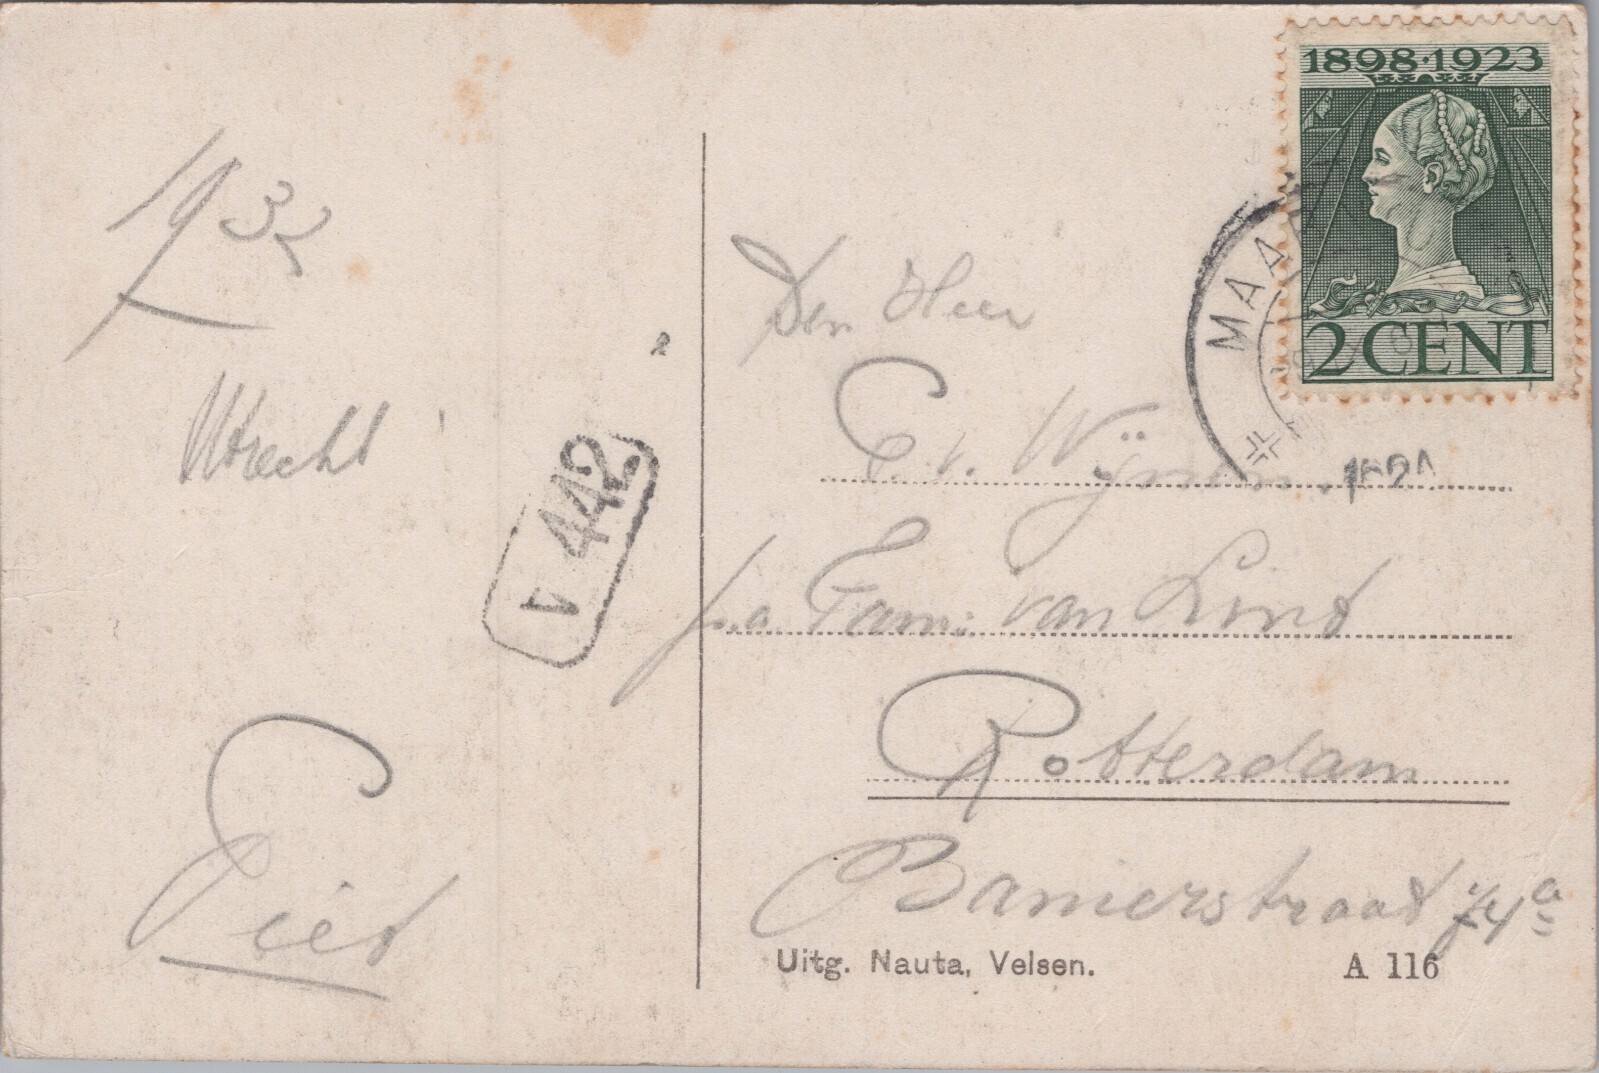 1898·1923
2 CENT
MAAR
193
Utrecht
V 442
Piet
Den Heer
v. Wijn
p.a. Fam: van Lint
Rotterdam
Banierstraat
Uitg. Nauta, Velsen.
A 116